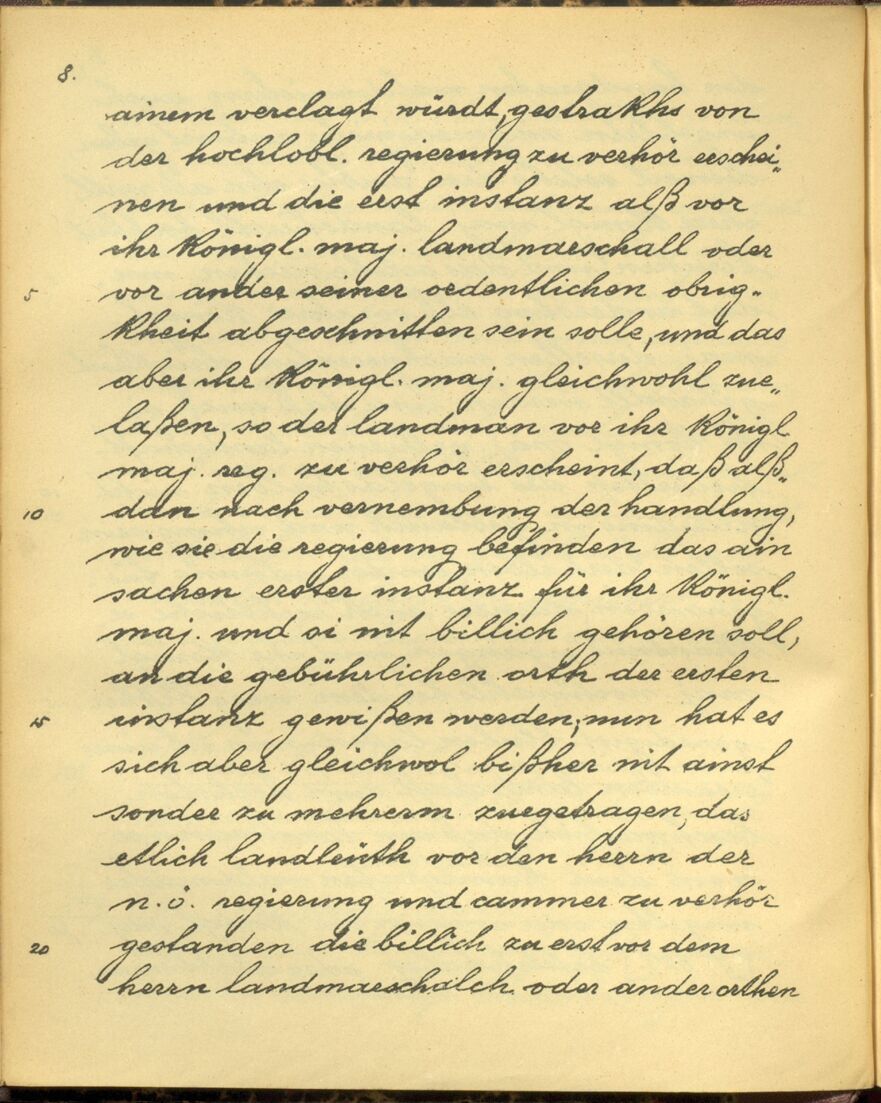 8.
ainem verclagt würdt, gestrakhs von
der hochlobl. regierung zu verhör erschei„
nen und die erst instanz alß vor
ihr Königl. maj. landmarschall oder
5 vor ander seiner ordentlichen obrig„
Kheit abgeschnitten sein solle, und das
aber ihr Königl. maj. gleichwohl zue„
laßen, so der landman vor ihr Königl
maj. reg. zu verhör erscheint, daß alß„
10 dan nach vernembung der handlung,
wie sie die regierung befinden das ain
sachen erster instanz für ihr Königl.
maj. und si nit billich gehören soll,
an die gebührlichen orth der ersten
15 instanz gewißen werden, nun hat es
sich aber gleichwol bißher nit ainst
sonder zu mehrerm zuegetragen, das
etlich landleüth vor den herrn der
n. ö. regierung und cammer zu verhör
20 gestanden die billich zu erst vor dem
herrn landmarschalch oder ander orthen